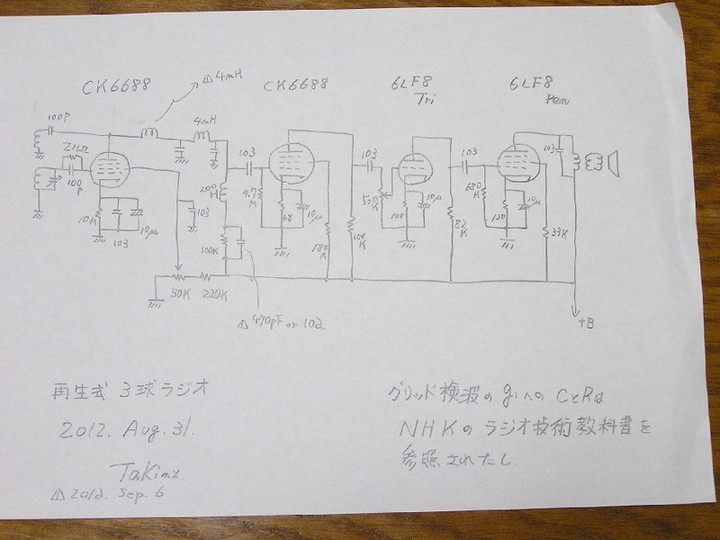 CK6688
⚠4mH
CK6688
6LF8
Tri
6LF8
Pen
100P
4mH
2MΩ
100P
103
103
103
103
200H
4.7M
500K
680K
10K
103
10μ
103
100K
68
10μ
180K
100K
100
10μ
82K
120
10μ
33K
50K
220K
⚠470pF or 102.
+B
再生式 3球ラジオ
2012. Aug. 31.
⚠2012. Sep. 6
グリッド検波のg1へのCとRは
NHKのラジオ技術教科書を
参照されたし.